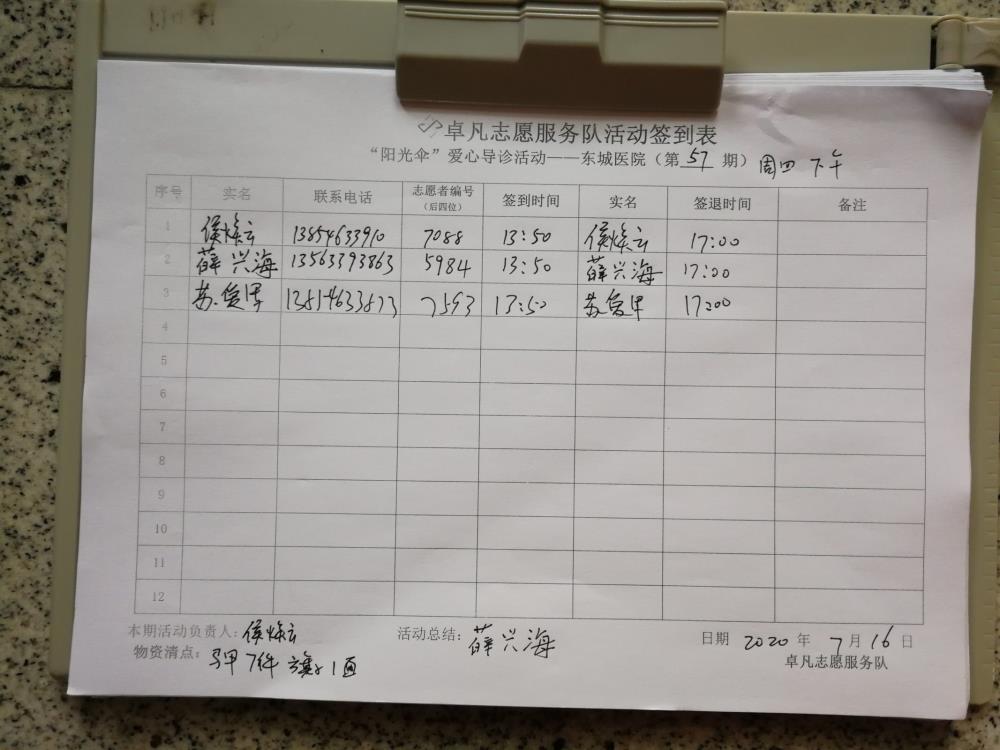 卓凡志愿服务队活动签到表
“阳光伞”爱心导诊活动——东城医院（第 57 期）周四 下午
序号 实名 联系电话 志愿者编号（后四位） 签到时间 实名 签退时间 备注
1 侯焕云 13854633910 7088 13:50 侯焕云 17:00
2 薛兴海 13563393863 5984 13:50 薛兴海 17:00
3 苏 7593 13:50 苏 17:00
4
5
6
7
8
9
10
11
12
本期活动负责人：侯焕云 活动总结：薛兴海 日期 2020 年 7 月 16 日
物资清点：马甲 7件 旗子 1面 卓凡志愿服务队